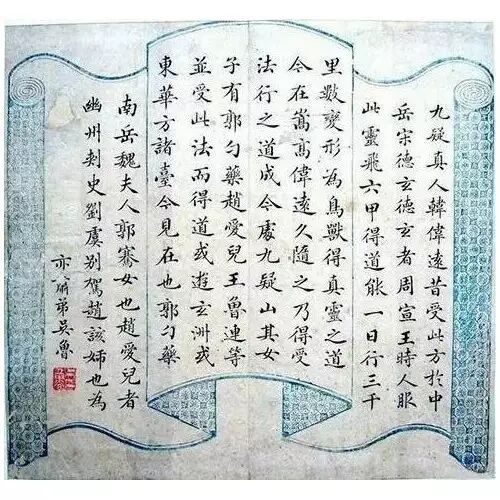 九疑真人韓偉遠昔受此方於中
岳宗德玄德玄者周宣王時人服
此靈飛六甲得道能一日行三千
里數變形為鳥獸得真靈之道
今在嵩高偉遠久隨之乃得受
法行之道成今處九疑山其女
子有郭勺藥趙愛兒王魯連等
並受此法而得道或遊玄洲或
東華方諸臺今見在也郭勺藥
南岳魏夫人郭騫女也趙愛兒者
幽州刺史劉虞別駕趙該姉也為
弟吳魯